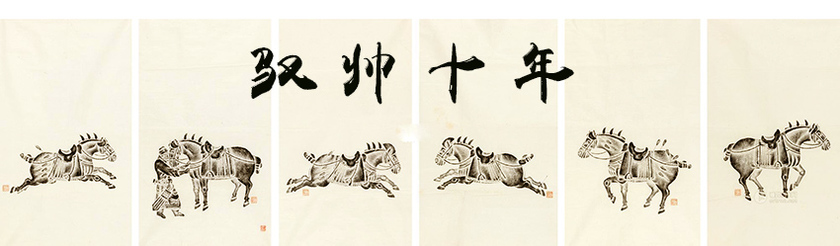 驭帅十年